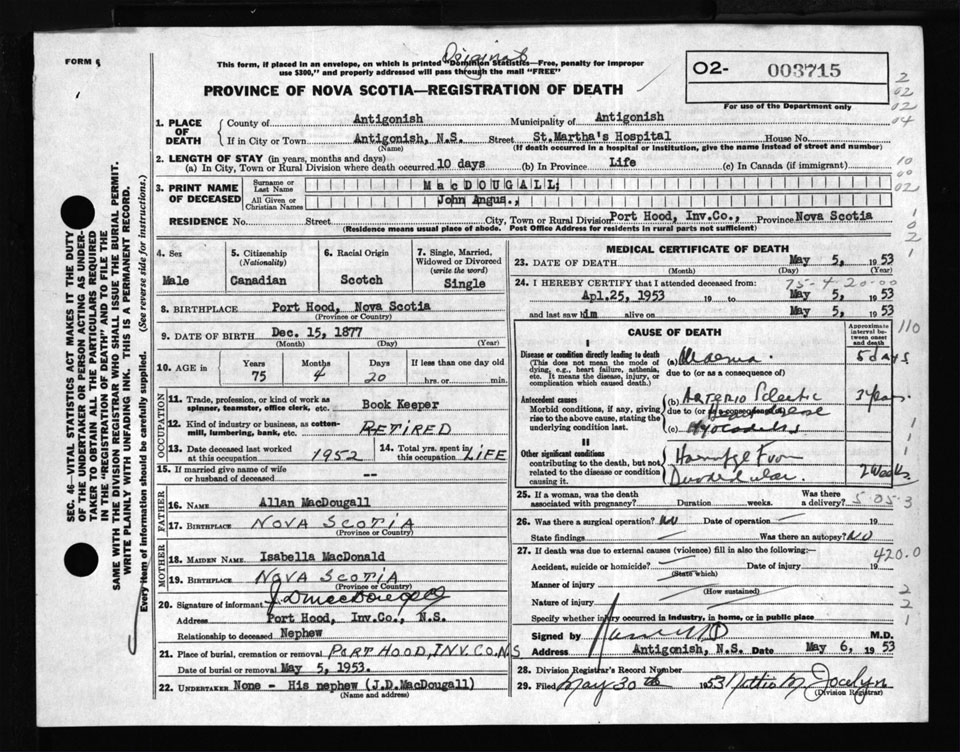 FORM
Original
This form, if placed in an envelope, on which is printed "Dominion Statistics—Free, penalty for improper
use $300," and properly addressed will pass through the mail "FREE"
PROVINCE OF NOVA SCOTIA—REGISTRATION OF DEATH
O2- 003715
For use of the Department only
2
02
02
04
1. PLACE OF DEATH
County of Antigonish Municipality of Antigonish
If in City or Town Antigonish, N.S. Street St.Martha's Hospital House No.
(Name) (If death occurred in a hospital or institution, give the name instead of street and number)
2. LENGTH OF STAY (in years, months and days)
(a) In City, Town or Rural Division where death occurred 10 days (b) In Province Life (c) In Canada (if immigrant)
10
00
02
3. PRINT NAME OF DECEASED
Surname or Last Name MacDOUGALL;
All Given or Christian Names John Angus.,
RESIDENCE No. Street City, Town or Rural Division Port Hood, Inv.Co., Province Nova Scotia
(Residence means usual place of abode. Post Office Address for residents in rural parts not sufficient)
1
0
2
SEC. 46—VITAL STATISTICS ACT MAKES IT THE DUTY
OF THE UNDERTAKER OR PERSON ACTING AS UNDER-
TAKER TO OBTAIN ALL THE PARTICULARS REQUIRED
IN THE "REGISTRATION OF DEATH" AND TO FILE THE
SAME WITH THE DIVISION REGISTRAR WHO SHALL ISSUE THE BURIAL PERMIT.
WRITE PLAINLY WITH UNFADING INK. THIS IS A PERMANENT RECORD.
Every item of information should be carefully supplied. (See reverse side for instructions.)
4. Sex
Male
5. Citizenship
(Nationality)
Canadian
6. Racial Origin
Scotch
7. Single, Married,
Widowed or Divorced
(write the word)
Single
8. BIRTHPLACE Port Hood, Nova Scotia
(Province or Country)
9. DATE OF BIRTH Dec. 15, 1877
(Month) (Day) (Year)
10. AGE in
Years Months Days If less than one day old
75 4 20 hrs. or min.
OCCUPATION
11. Trade, profession, or kind of work as
spinner, teamster, office clerk, etc. Book Keeper
12. Kind of industry or business, as cotton-
mill, lumbering, bank, etc. RETIRED
13. Date deceased last worked
at this occupation 1952
14. Total yrs. spent in
this occupation LIFE
15. If married give name of wife
or husband of deceased --
FATHER
16. NAME Allan MacDougall
17. BIRTHPLACE NOVA SCOTIA
(Province or Country)
MOTHER
18. MAIDEN NAME Isabella MacDonald
19. BIRTHPLACE NOVA SCOTIA
(Province or Country)
20. Signature of informant J D MacDougall
Address Port Hood, Inv.Co., N.S.
Relationship to deceased Nephew
21. Place of burial, cremation or removal PORT HOOD, INV. CO. N.S
Date of burial or removal May 5, 1953.
22. UNDERTAKER None - His nephew (J.D.MacDougall)
(Name and address)
MEDICAL CERTIFICATE OF DEATH
23. DATE OF DEATH May 5, 1953
(Month) (Day) (Year)
75-4 20-00
24. I HEREBY CERTIFY that I attended deceased from:
Apl.25, 1953 19 to May 5, 1953
and last saw him alive on May 5, 1953
CAUSE OF DEATH
Approximate interval between onset and death
110
I
Disease or condition directly leading to death
(This does not mean the mode of
dying, e.g., heart failure, asthenia,
etc. It means the disease, injury, or
complication which caused death.)
(a) Uraemia. 5 days
due to (or as a consequence of)
Antecedent causes
Morbid conditions, if any, giving
rise to the above cause, stating the
underlying condition last.
(b) Arterio Sclerotic 3 Years.
due to (or as a consequence of)
(c)
1
II
Other significant conditions
contributing to the death, but not
related to the disease or condition
causing it.
From
Duodenal ulcer. 2 Weeks
1
25. If a woman, was the death
associated with pregnancy? Duration weeks. Was there a delivery?
5-05-3
26. Was there a surgical operation? NO Date of operation 19
State findings Was there an autopsy? NO
27. If death was due to external causes (violence) fill in also the following:-
420.0
Accident, suicide or homicide? Date of injury 19
(State which)
Manner of injury
(How sustained)
2
Nature of injury
2
Specify whether injury occurred in industry, in home, or in public place
1
Signed by M.D.
Address Antigonish, N.S. Date May 6, 1953
28. Division Registrar's Record Number
29. Filed May 30th 1953 Hattie M Jocelyn
(Division Registrar)